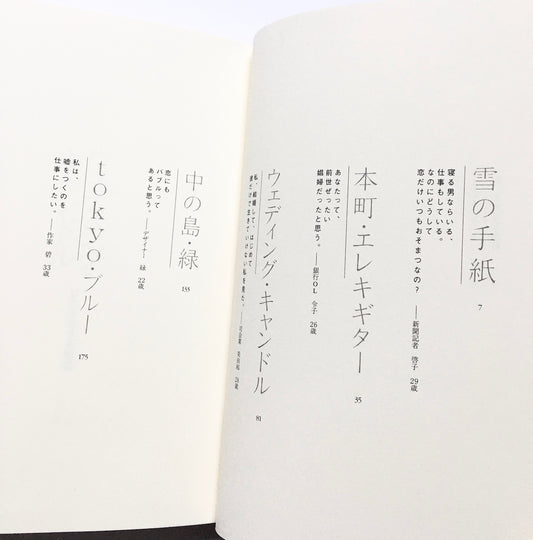 雪の手紙
7
寝る男ならいる、
仕事もしている。
なのにどうして
恋だけいつもおそまつなの?
——新聞記者 啓子 29歳
本町・エレキギター
35
あなたって、
前世ぜったい
娼婦だったと思う。
——銀行OL 令子 26歳
ウェディング・キャンドル
81
私、結婚して、はじめて
彼だけで生きていけない私を見た。
中の島・緑
135
恋にも
バブルって
あると思う。
——デザイナー 緑 22歳
tokyo・ブルー
175
私は、
嘘をつくのを
仕事にしたい。
——作家 碧 33歳